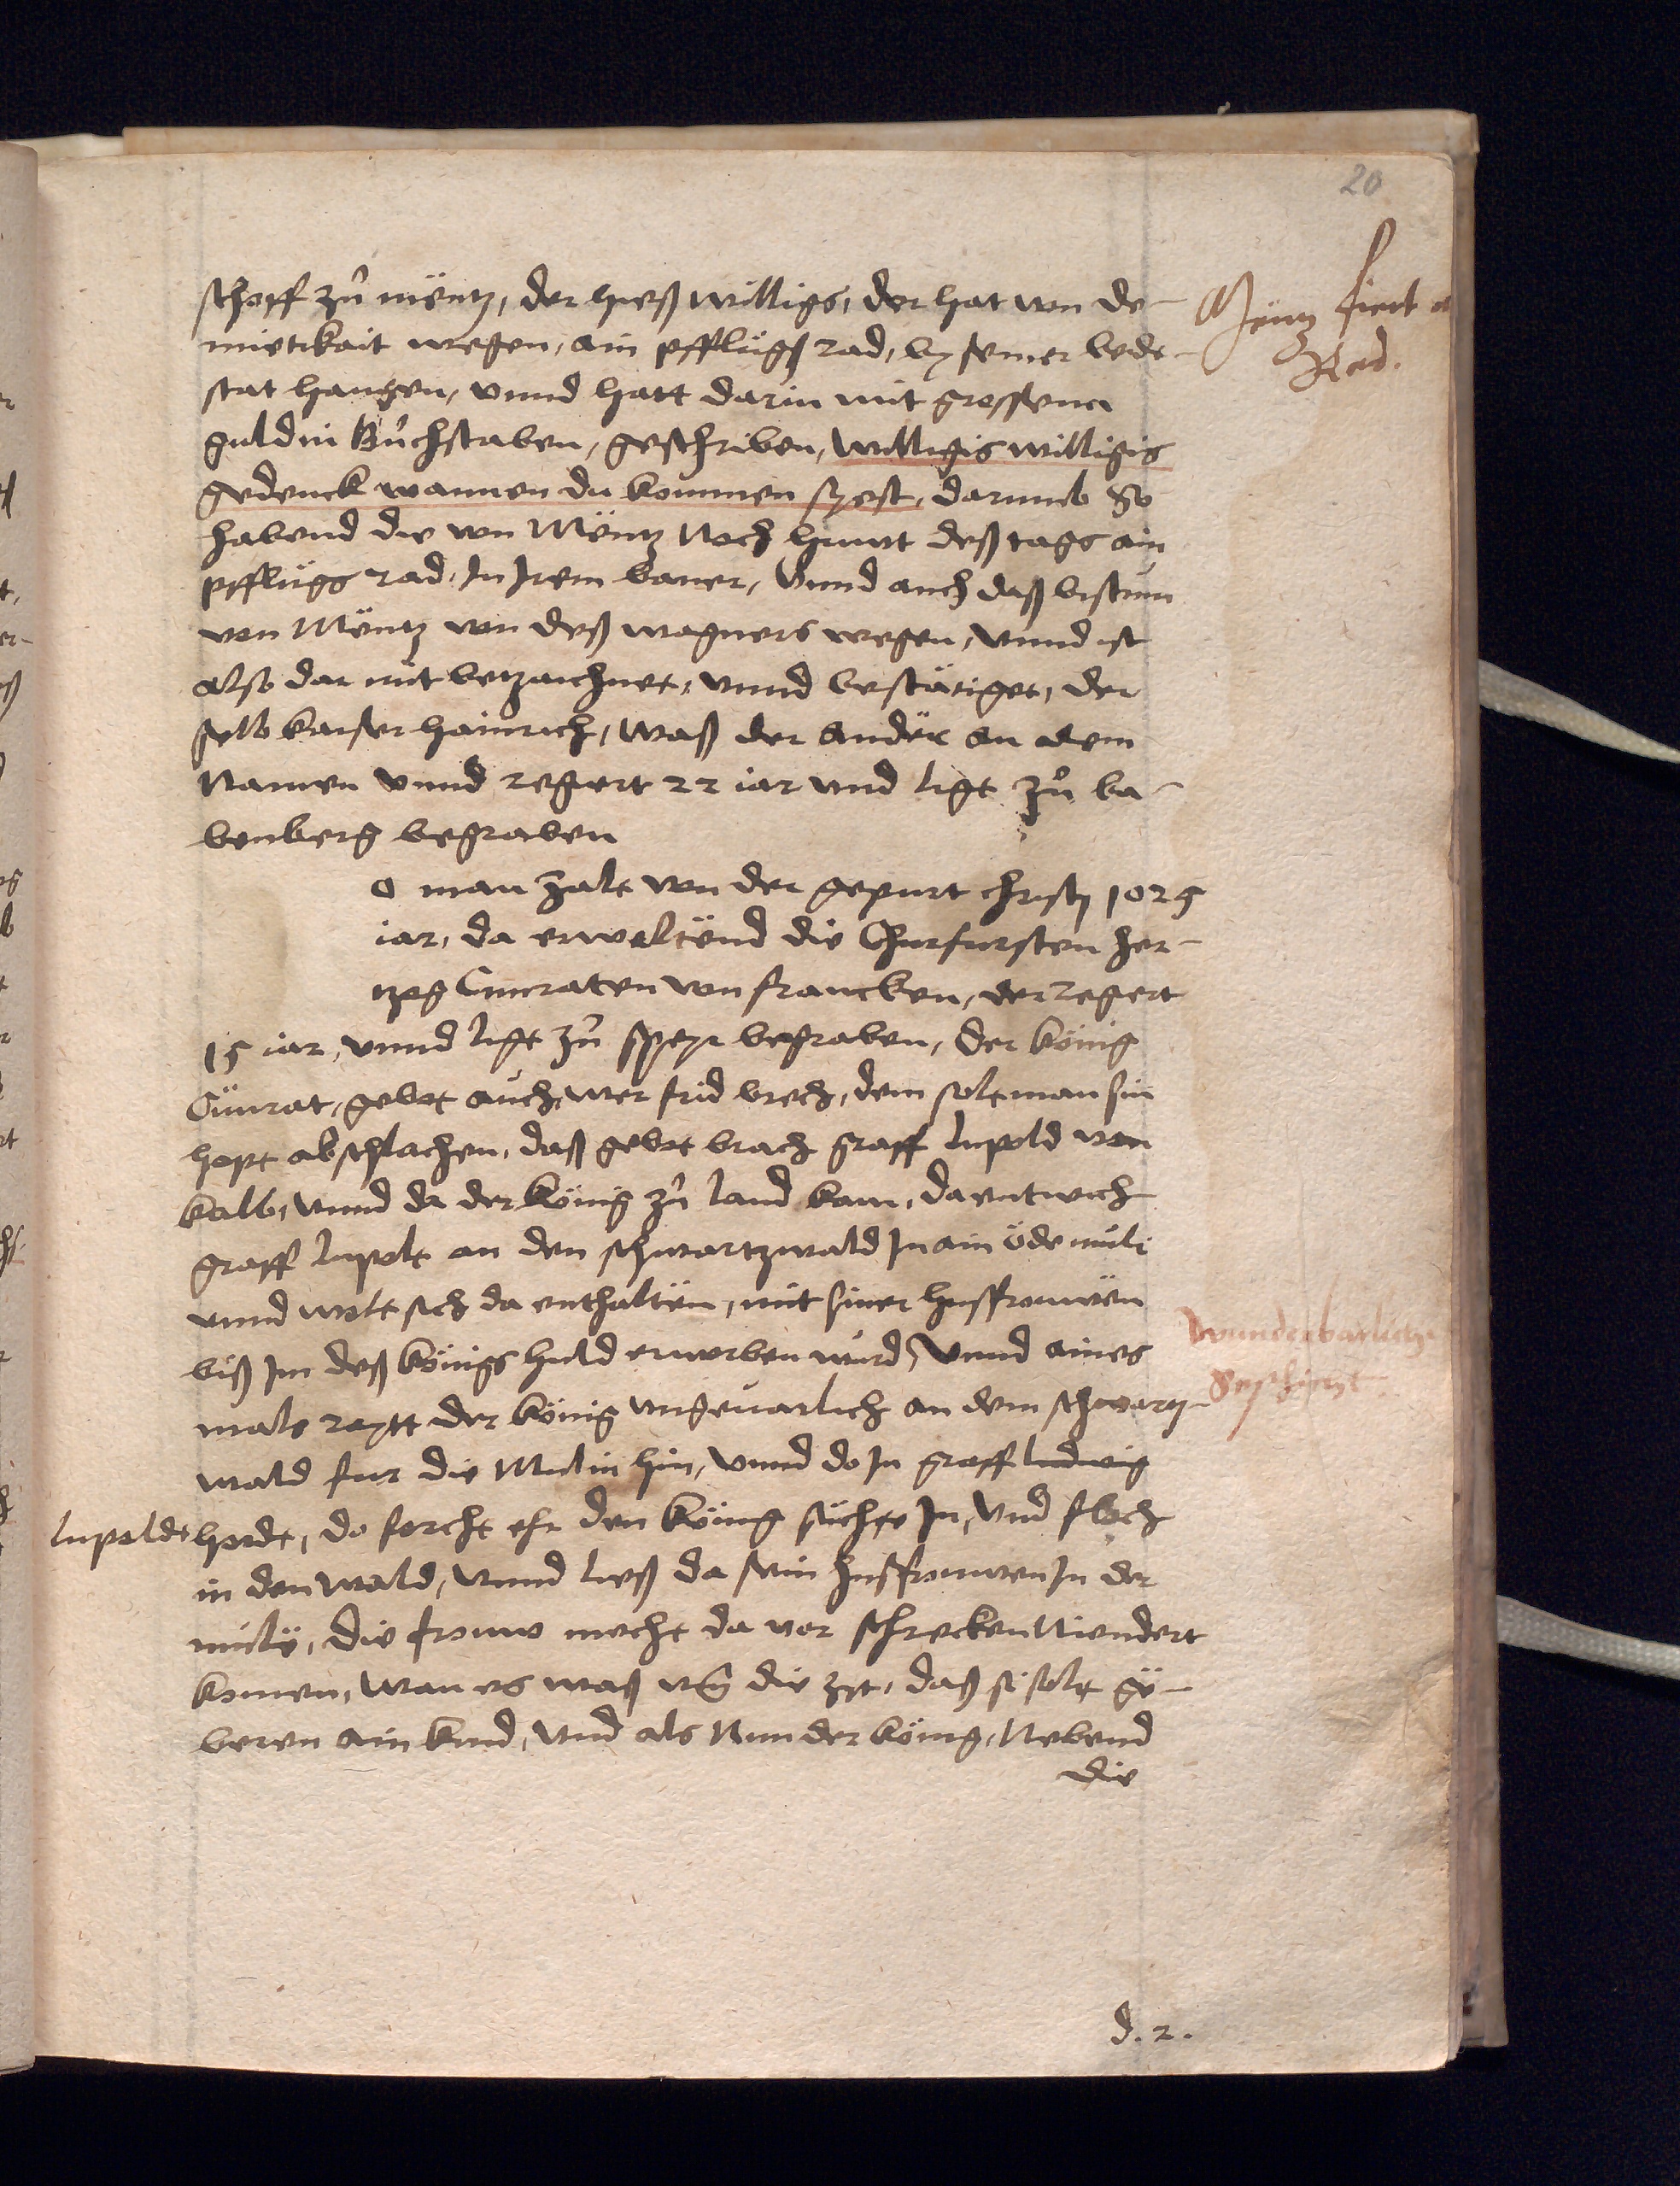 20
schoff zů mëntz, der hieß willigs, der hat von de-
mietikait wegen, ain pfflůgs rad, by seiner bede-
stat hangen, vnnd hatt darin mit grossenn
guldin Bůchstaben, geschriben, willigis willigis
gedenck wannen du kommen syest, darumb So
habend die von Mëntz Noch hiutt deß tags ain
pfflůgs rad, In Irem baner, Vnnd auch daß bistům
von Mëntz von deß wagners wegen, vnnd ist
also dar mit betzaichnet, vnnd bestätiget, der
selb kaiser hainrich, waß der ander an dem
Namen vnnd regiert 22 iar vnd ligt zů ba-
benberg begraben
o man zalt von der gepurt christj 1025
iar, da erweltend die Churfursten her-
tzog Cunraten von francken, der regiert
15 iar, vnnd ligt zů speyr begraben, der könig
Cůnrat, gebot auch, wer frid brech, dem solt man sin
hopt abschlachen, daß gebot brach graff lupold von
kalb, vnnd da der könig zů land kam, da entwich
graff lupolt an den schwartzwald In ain öde müli
vnnd wolt sich da enthalten, mit siner hussfrouwen
biß Im deß königs huld erworben wurd, Vnnd aines
mals raytt der könig vngeuarlich an dem schwartz-
wald fur die Mulin hin, vnnd do In graff ludwig
lupoldt hordt, do forcht ehr den könig süchte In, Vnd floch
in den wald, Vnnd ließ da sein hussfrouwen In der
müly, die frouw mocht da vor schrecken Niendert
komen, wan es waß vff die zyt, daß si solt ge-
beren ain kind, Vnd als Nun der könig, Nebend
die
d. 2.
Mëntz fiert a
Rad.
Wunderbarlich